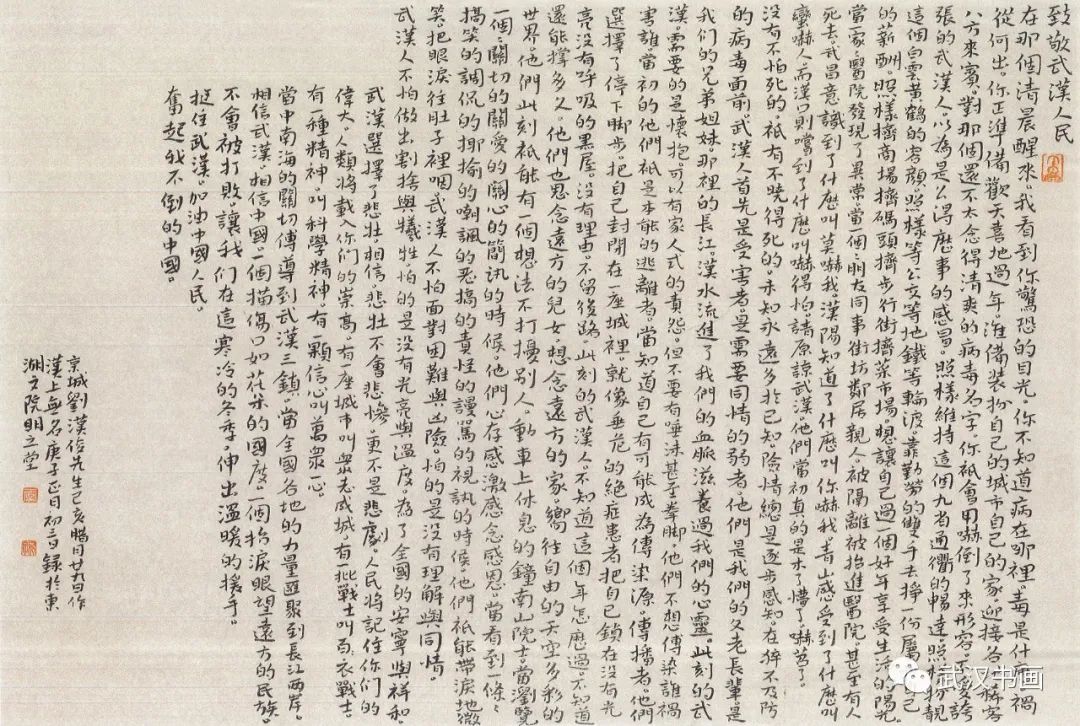 致敬武漢人民
在那個清晨醒來。我看到你驚恐的目光。你不知道病在哪裡。毒是什麽。禍
從何出。你正準備歡天喜地過年。准備裝扮自己的城市自己的家。迎接各
八方來賓。對那個還不太念得清爽的病毒名字。你祇會用嚇倒了來形容。
張的武漢人。以為是么得麽事的感冒。照樣維持這個九省通衢的暢達。照樣扮靓
這個白雲黄鶴的容顔。照樣等公交等地鐵等輪渡。靠勤勞的雙手去掙一份屬
的薪酬。照樣擠商場擠碼頭擠步行街擠菜市場。想讓自己過一個好年享受生活的陽光
當一家醫院發現了異常。當一個朋友同事街坊鄰居親人被隔離被抬進醫院。甚至有人
死去。武昌意識到了什麽叫莫嚇我。漢陽知道了什麽叫你嚇我。青山感受到了什麽叫
蠻嚇人。而漢口則嚐到了什麽叫嚇得怕。請原諒武漢。他們當初真的是木了懵了嚇苕了。
没有不怕死的。祇有不曉得死的。未知永遠多於已知。險情總是逐步感知。在猝不及防
的病毒面前。武漢人首先是受害者。是需要同情的弱者。他們是我們的父老長輩。是
我們的兄弟姐妹。那裡的長江。漢水流進了我們的血脈。滋養過我們的心靈。此刻的武
漢。需要的是懷抱。可以有家人式的責怨。但不要有唾沫甚至拳脚。他們不想傳染誰禍
害誰。當初的他們祇是本能的逃離者。當知道自己有可能成為傳染源。傳播者。他們
選擇了停下脚步。把自己封閉在一座城裡。就像垂危的絶症患者把自己鎖在没有光
亮没有呼吸的黑屋。没有理由。不留後路。此刻的武漢人。不知道這個年怎麽過。不知道
還能撑多久。他們也思念遠方的兒女。想念遠方的家。嚮往自由的天空多彩的
世界。他們此刻祇能有一個想法不打擾别人。動車上休息的鐘南山院士。當瀏覽
一個個關切的關愛的關心的簡訊的時候。他們心存感激感念感恩。當看到一條條
搞笑的調侃的揶揄的嘲諷的惡搞的責怪的謾駡的視訊的時候。他們祇能帶淚地微
笑。把眼淚往肚子裡咽。武漢人不怕面對困難與凶險。怕的是没有理解與同情。
武漢人不怕做出割捨與犧牲。怕的是没有光亮與温度。為了全國的安寧與祥和。
武漢選擇了悲壯。相信。悲壯不會悲慘。更不是悲劇。人民將記住你們的
偉大。人類將載入你們的崇高。有一座城市叫衆志成城。有一批戰士叫白衣戰士。
有一種精神叫科學精神。有一顆信心叫萬衆一心。
當中南海的關切傳導到武漢三鎮。當全國各地的力量匯聚到長江两岸。
相信武漢。相信中國。一個描傷口如花朵的國度。一個拾淚眼望遠方的民族。
不會被打敗。讓我們在這寒冷的冬季。伸出温暖的援手。
挺住武漢。加油中國人民。
奮起我不倒的中國。
京城劉漢俊先生己亥臘月廿九日作
漢上無名庚子正月初三日錄於東
湖文院明之堂
武汉书画